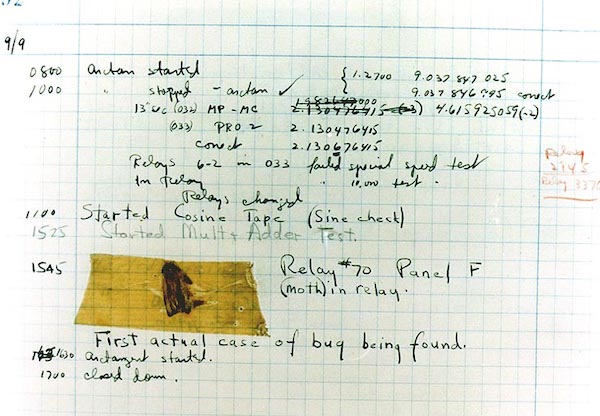 9/9
0800 Antan started { 1.2700 9.037 847 025
1000 " stopped - antan ✓ 9.037 846 995 conect
13"uc (032) MP-MC 2.130476415 (-3) 4.615925059(-2)
(033) PRO 2 2.130476415
conect 2.130676415
Relays 6-2 in 033 failed special speed test
In Relay " 10,000 test.
Relay
3370
Relays changed
1100 Started Cosine Tape (Sine check)
1525 Started Mult + Adder Test.
1545 Relay #70 Panel F
(moth) in relay.
First actual case of bug being found.
1630 antangent started.
1700 closed down.